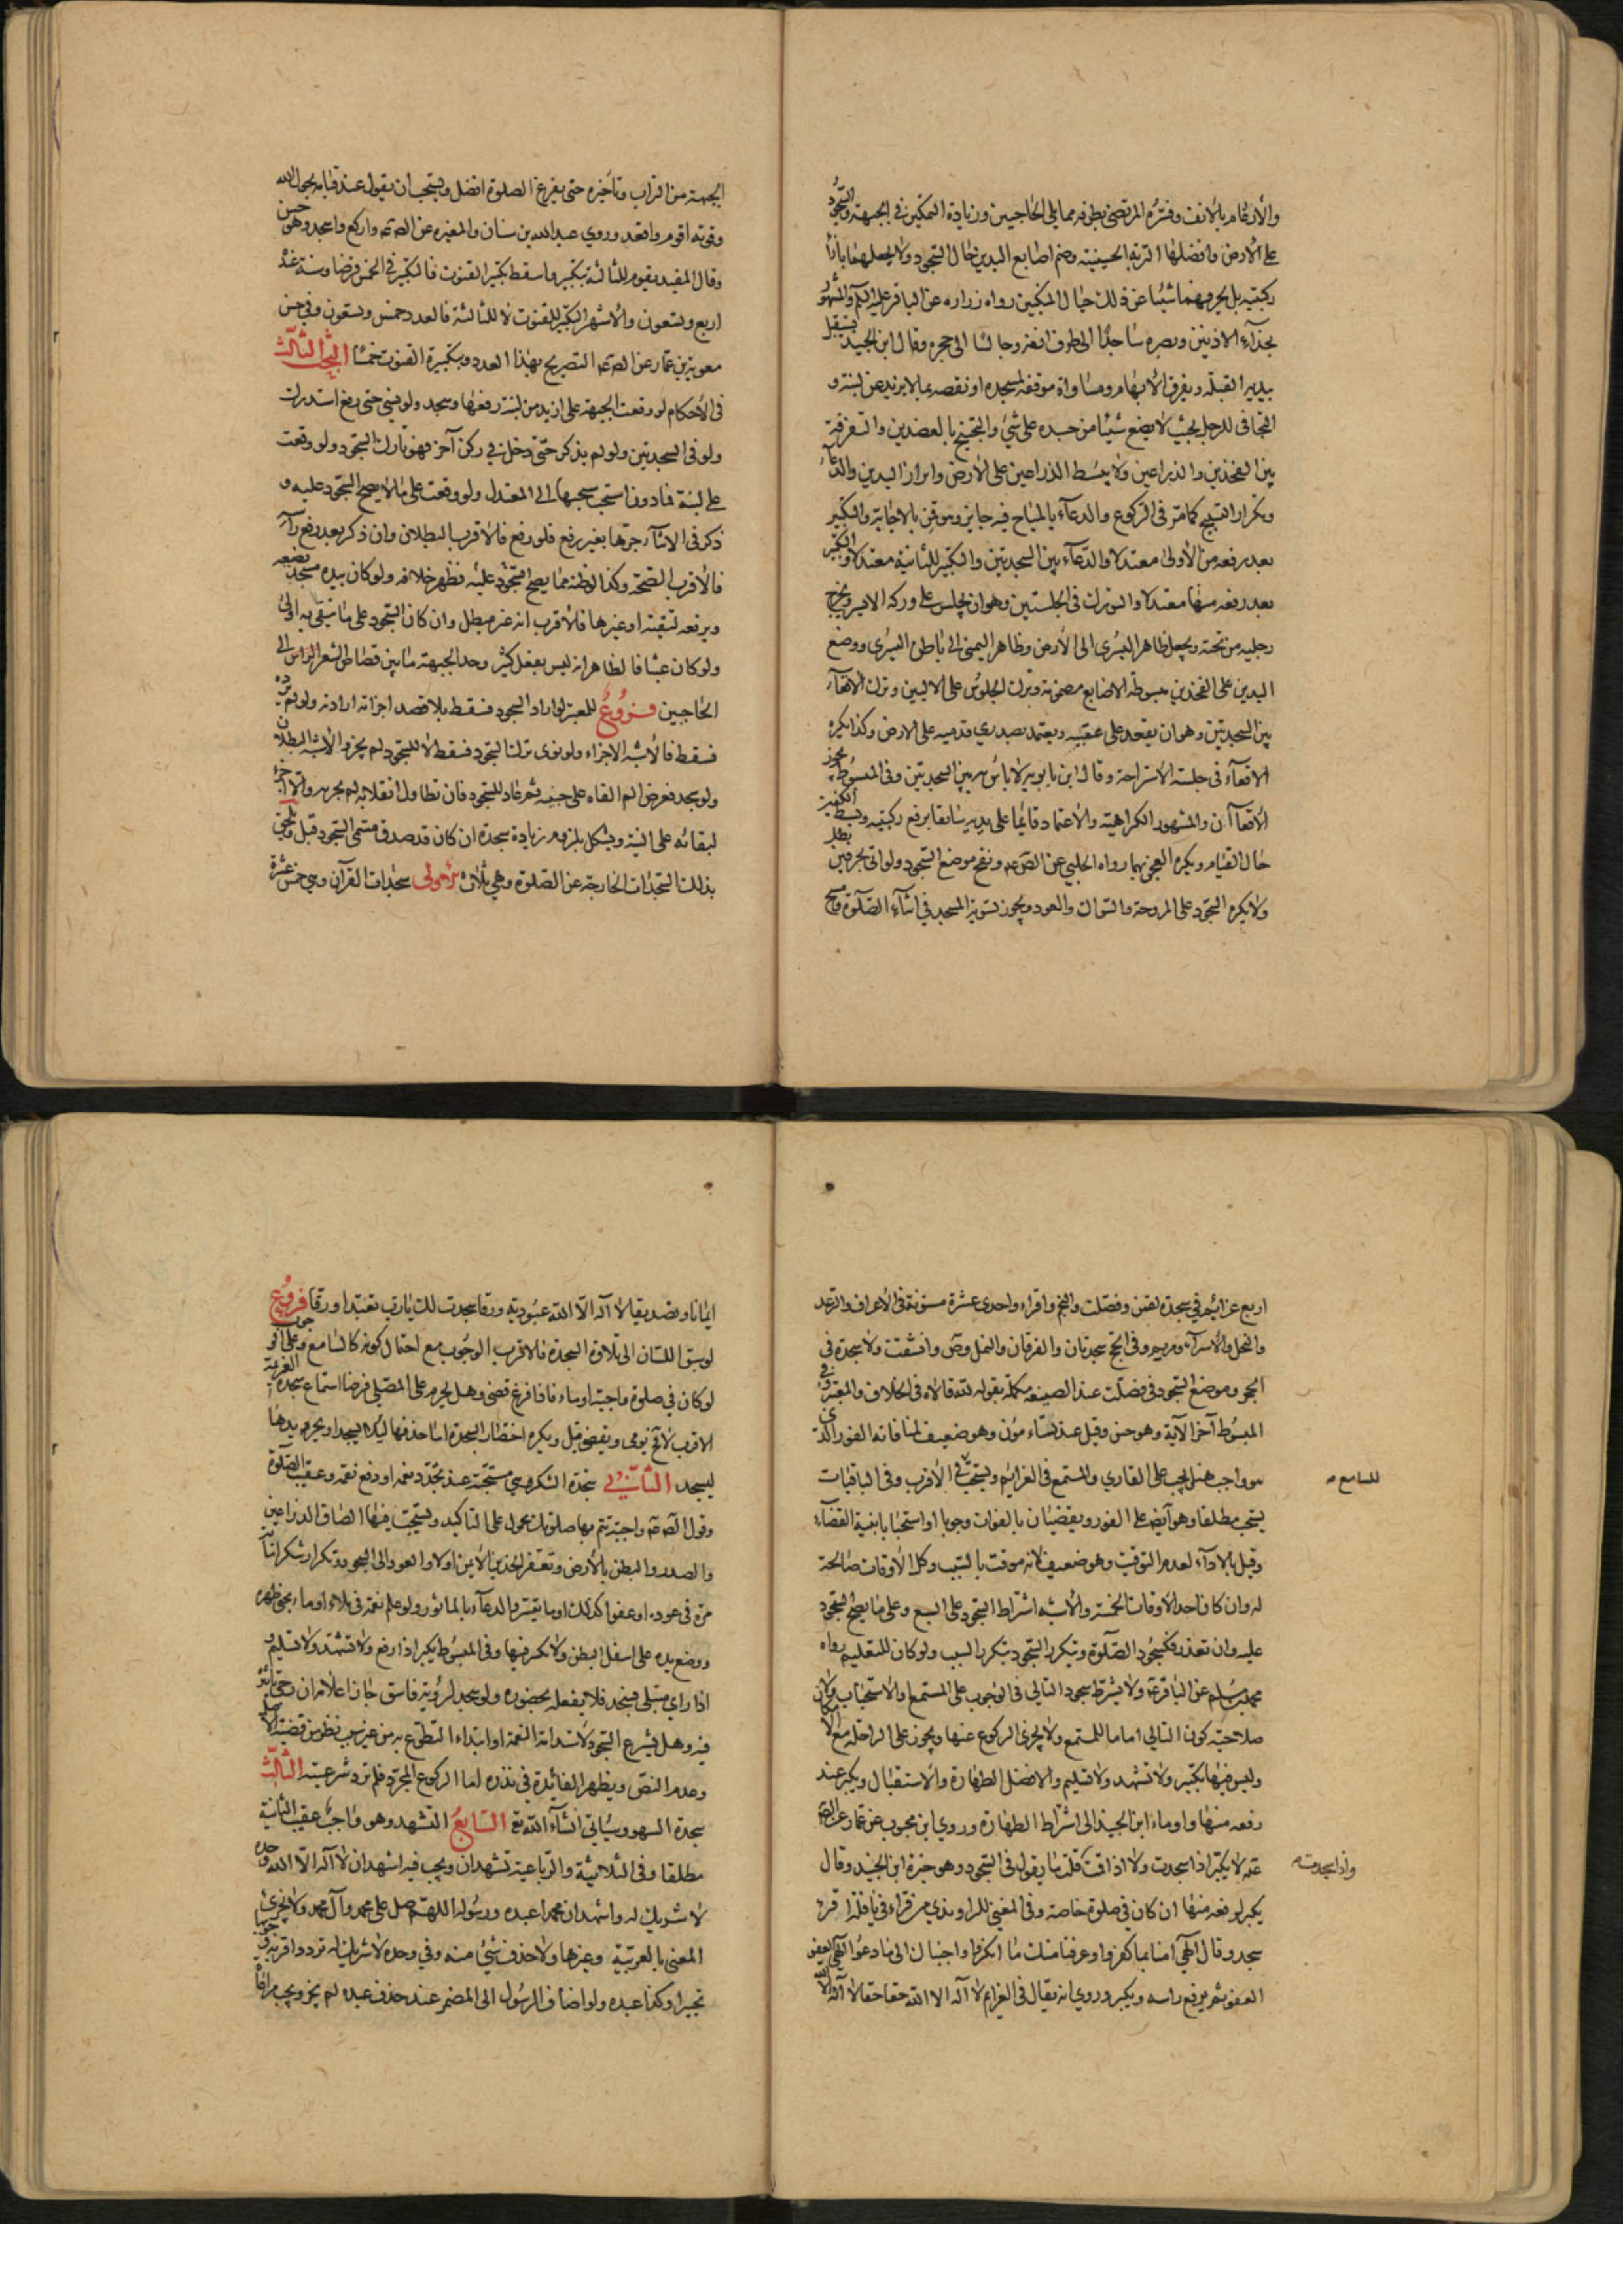 والأرغام بالأنف وفسّره المرتضى بطرفه مما يلي الحاجبين وزيادة التمكين في الجبهة والسجود
على الأرض وافضلها التربة الحسينية وضم اصابع اليدين حال السجود ولا يجعلهما بازآء
ركبتيه بل يحرفهما شيئا عن ذلك حيال المنكبين رواه زراره عن الباقر عليه السلام والمشهور
بحذآء الاذنين وبصره ساجدا الى طرف انفه وجالسا الى حجره وقال ابن الجنيد يستقبل
بيديه القبلة ويفرق الأبهام ومساواة موقفه لمسجده او نقصه بما لا يزيد عن لبنة و
التجافى للرجل بحيث لا يضع شيئا من جسده على شئ والتجنيح بالعضدين والتفرقة
بين الفخذين والذراعين ولا يبسط الذراعين على الأرض وابراز اليدين والدعآء
وتكرار التسبيح كما مرّ فى الركوع والدعآء بالمباح فيه جايز وموقن بالاجابة والتكبير
بعد رفعه من الأولى معتدلا والدعآء بين السجدتين والتكبير للثانية معتدلا والتكبير
بعد رفعه منها معتدلا والتورك فى الجلستين وهو ان يجلس على وركه الايسر ويخرج
رجليه من تحته ويجعل ظاهر اليسرى الى الأرض وظاهر اليمنى الى باطن اليسرى ووضع
اليدين على الفخذين مبسوطة الاصابع مضمومة وترك الجلوس على الاليين وترك الاقعآء
بين السجدتين وهو ان يقعد على عقبيه ويعتمد بصدري قدميه على الارض وكذا يكره
الاقعآء فى جلسة الاستراحة وقال ابن بابويه لا باس به بين السجدتين وفى المبسوط يجوز
الأقعاآن والمشهور الكراهية والأعتماد قايما على يديه سابقا برفع ركبتيه وبسط الكفين
حال القيام ويكره العجن بهما رواه الحلبي عن الصم ونفخ موضع السجود ولو اتى بحرفين بطل
ولا يكره السجود على المروحة والسواك والعود ويجوز تسوية المسجد في اثنآء الصلوة ومسح
الجبهة من التراب وتأخيره حتى يفرغ الصلوة افضل ويستحب ان يقول عند قيامه بحول الله
وقوته اقوم واقعد وروي عبد الله بن سنان والمغيره عن الص ع م واركع واسجد وهو حسن
وقال المفيد يقوم للثالثة بتكبير واسقط تكبير القنوت فالتكبير في الخمس فرضا وسنة عنده
اربع وتسعون والأشهر التكبير للقنوت لا للثالثة فالعدد خمس وتسعون وفي حسن
معوية بن عمّار عن الص ع م التصريح بهذا العدد وبتكبيرة القنوت خمسًا البحث الثالث
فى الأحكام لو وقعت الجبهة على ازيد من لبنة رفعها وسجد ولو نسي حتى رفع استدرك
ولو فى السجدتين ولو لم يذكر حتى دخل في ركن آخر فهو تارك السجود ولو وقعت
على لبنة فما دون استحب سحبها الى المعتدل ولو وقعت على ما لا يصح السجود عليه و
ذكر فى الاثنآء جرّها بغير رفع فلو رفع فالأقرب البطلان وان ذكر بعد رفع رآسه
فالأقرب الصحة وكذا لو ظنه مما يصح السجود عليه فظهر خلافه ولو كان بيده مسجد يضعه
ويرفعه لتقية او غيرها فالأقرب انه غير مبطل وان كان السجود على ما يتقى به اولى
ولو كان عبثا فالظاهر انه ليس بفعل كثير وحد الجبهة ما بين قصاص الشعر الراس الى
الحاجبين فروع للمعتبر لو اراد السجود فسقط بلا قصد اجزاته ارادته ولو لم يرده
فسقط فالأشبه الاجزاء ولو نوى ترك السجود فسقط لا للسجود لم يجز والأشبه البطلان
ولو سجد فعرض الم القاه على جنبيه ثم عاد للسجود فان تطاول انقلابه لم يجزه والا اجزء
لبقائه على النية ويشكل بلزوم زيادة سجدة ان كان قد صدق مسمى السجود قبل ويلحق
بذلك السجدات الخارجة عن الصلوة وهي ثلاث الأولى سجدات القرآن وهي خمس عشرة
اربع عزائم في سجدة لقمن وفصلت والنجم واقراء واحدى عشرة مسنونة فى الأعراف والرعد
والنحل والأسرآء ومريم وفى الحج سجدتان والفرقان والنمل وص وانشقت ولا سجدة فى
الحجر وموضع السجود فى فصلت عند الصيغة مكملة بقوله لله قالاه فى الخلاف والمعتبر وفي
المبسوط آخر الآية وهو حسن وقيل عند تساءمون وهو ضعيف لمنافاته الفور الذى
هو واجب هنا يجب على القاري والمستمع فى العزائم ويستحب في الأقرب وفى الباقيات
للسامع
يستحب مطلقا وهو آيضا على الفور ويقضيان بالفوات وجوبا او استحبابا بنية القضآء
وقيل بالادآء لعدم التوقيت وهو ضعيف لانه موقت بالسبب وكل الأوقات صالحة
له وان كان احد الأوقات الخمسة والأشبه اشتراط السجود على السبع وعلى ما يصح السجود
عليه وان تعذر فكسجود الصلوة ويتكرر السجود بتكرر السبب ولو كان للتعليم رواه
محمد بن مسلم عن الباقر ع م ولا يشترط سجود التالي فى الوجوب على المستمع او الاستحباب ولا
صلاحية كون التالي اماما للمستمع ولا يجزى الركوع عنها ويجوز على الراحلة مع الأمكان
وليس فيها تكبير ولا تشهد ولا تسليم والافضل الطهارة والاستقبال ويكبر عند
رفعه منها واوماء ابن الجنيد الى اشتراط الطهارة وروي ابن محبوب عن عمار عن الص
ع م لا يكبر اذا سجدت ولا اذا قمت قلت ما يقول فى السجود وهو خيرة ابن الجنيد وقال
واذا سجدت
يكبر لرفعه منها ان كان في صلوة خاصة وفى المغني للراوندي من قراء فى نافلة اقرء
سجد وقال الهي آمنا بما كفروا وعرفنا منك ما انكروا واجبناك الى ما دعوا الهي العفو
العفو ثم يرفع راسه ويكبر وروي انه يقال فى العزايم لا آله الا الله حقا حقا لا آله الا الله
ايمانا وتصديقا لا آله الا الله عبودية ورقا سجدت لك يا رب تعبدا ورقا فروع
لو سبق اللسان الى تلاوة السجدة فالاقرب الوجوب مع احتمال كونه كالسامع وعلى الوجوب
لو كان في صلوة واجبة اوماء فاذا فرغ قضى وهل يحرم على المصلي فرضا استماع سجدة العزيمة
الاقرب لا ثم يومى ويقضى قبل ويكره اختصار السجدة اما حذفها ليلا يسجد او يجرد يدها
ليسجد الثانية سجدة الشكر وهي مستحبة عند تجدد نعمة او دفع نقمة وعقيب الصلوة
وقول الص ع م واجبة تتم بها صلوتك محمول على التاكيد ويستحب فيها الصاق الذراعين
والصدر والبطن بالأرض وتعفير الخدين الأيمن اولا والعود الى السجود وتكرار شكرا مآئة
مرّة فى عوده او عفوا كذلك او ما تيسر والدعآء بالماثور ولو علم نعمة فى ملاء اوماء بحنى ظهره
ووضع يده على اسفل البطن ولا تكبر فيها وفى المبسوط يكبر اذا رفع ولا تشهد ولا تسليم و
اذا راي مبتلى فيسجد فلا يفعله بحضوره ولو سجد لرؤية فاسق جاز اعلامه ان رجى تاثره
فيه وهل يشرع السجود لاستدامة النعمة او ابتداء التطوع به من غير سبب نظر من قضية الأصل
وعدم النص ويظهر الفائدة في نذره اما الركوع المجرد فلم ترد شرعيته الثالث
سجدة السهو وسياتي انشآء الله تع السابع التشهد وهو واجب عقيب الثانية
مطلقا وفى الثلاثية والرباعية تشهدان ويجب فيه اشهد ان لا آله الا الله وحده
لا شريك له واشهد ان محمدا عبده ورسوله اللهم صل على محمد وآل محمد ولا يجزى
المعنى بالعربية وغيرها ولا حذف شئ منه وفي وحده لا شريك له تردد اقربه وجوبها
تخييرا وكذا عبده ولو اضاف الرسول الى المضمر عند حذف عبده لم يجز ويجب مراعاة